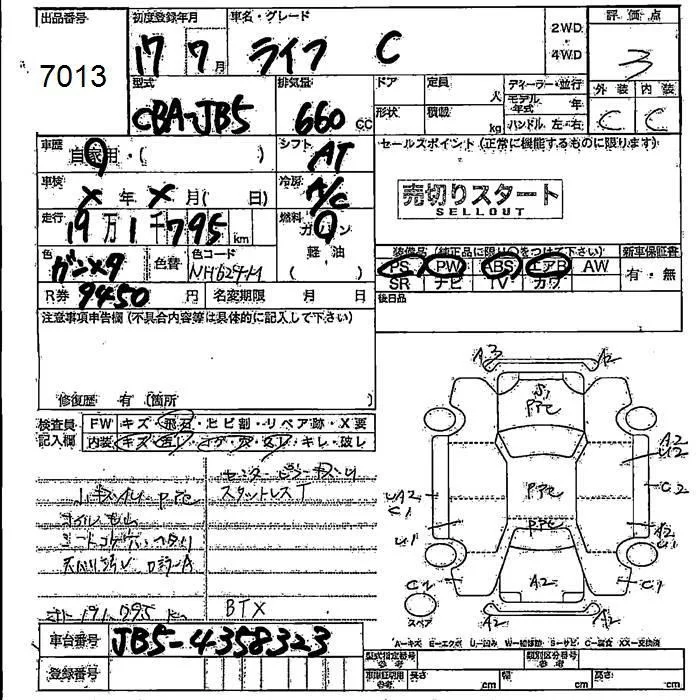 出品番号 初度登録年月 車名・グレード 評価点
7013 17 7月 ライフ C 2WD・4WD 3
型式 排気量 ドア 定員 人 ディーラー・並行 外装 内装
CBA-JB5 660 CC 形状 積載 kg モデル年式 年 C C
ハンドル 左・右
車歴 自家用・( ) シフト AT セールスポイント(正常に機能するものに限ります)
車検 X年X月(日) 冷房 A/C 売切りスタート
SELLOUT
走行 19万1千795km 燃料 ガソリン
軽油
( )
色 ガンメタ 色替 色コード NH629-M
装備品(純正品に限り○をつけて下さい) 新車保証書
PS PW ABS エアB AW 有・無
SR ナビ TV カワ
R券 9450円 名変期限 月 日 後日品
注意事項申告欄(不具合内容等は具体的に記入して下さい)
修復歴 有(箇所 )
検査員記入欄 FW キズ・飛石・ヒビ割・リペア跡・X要
内装 キズ・汚レ・コゲ・穴・スレ・キレ・破レ
スタットレスT
BTX
A3 A2
PPC
A2
U2
PPC
C2
UA2
C1
PPC
A2
C1
U1
C2
C1
A2
A2
スペア
A-キズ E-エクボ U-凹み W-補修跡 S-サビ C-腐食 XX-交換済
車台番号 JB5-4358323
登録番号
型式指定番号 参考 類別区分番号 参考
車庫証明用 参考 長さ cm 幅 cm 高さ cm